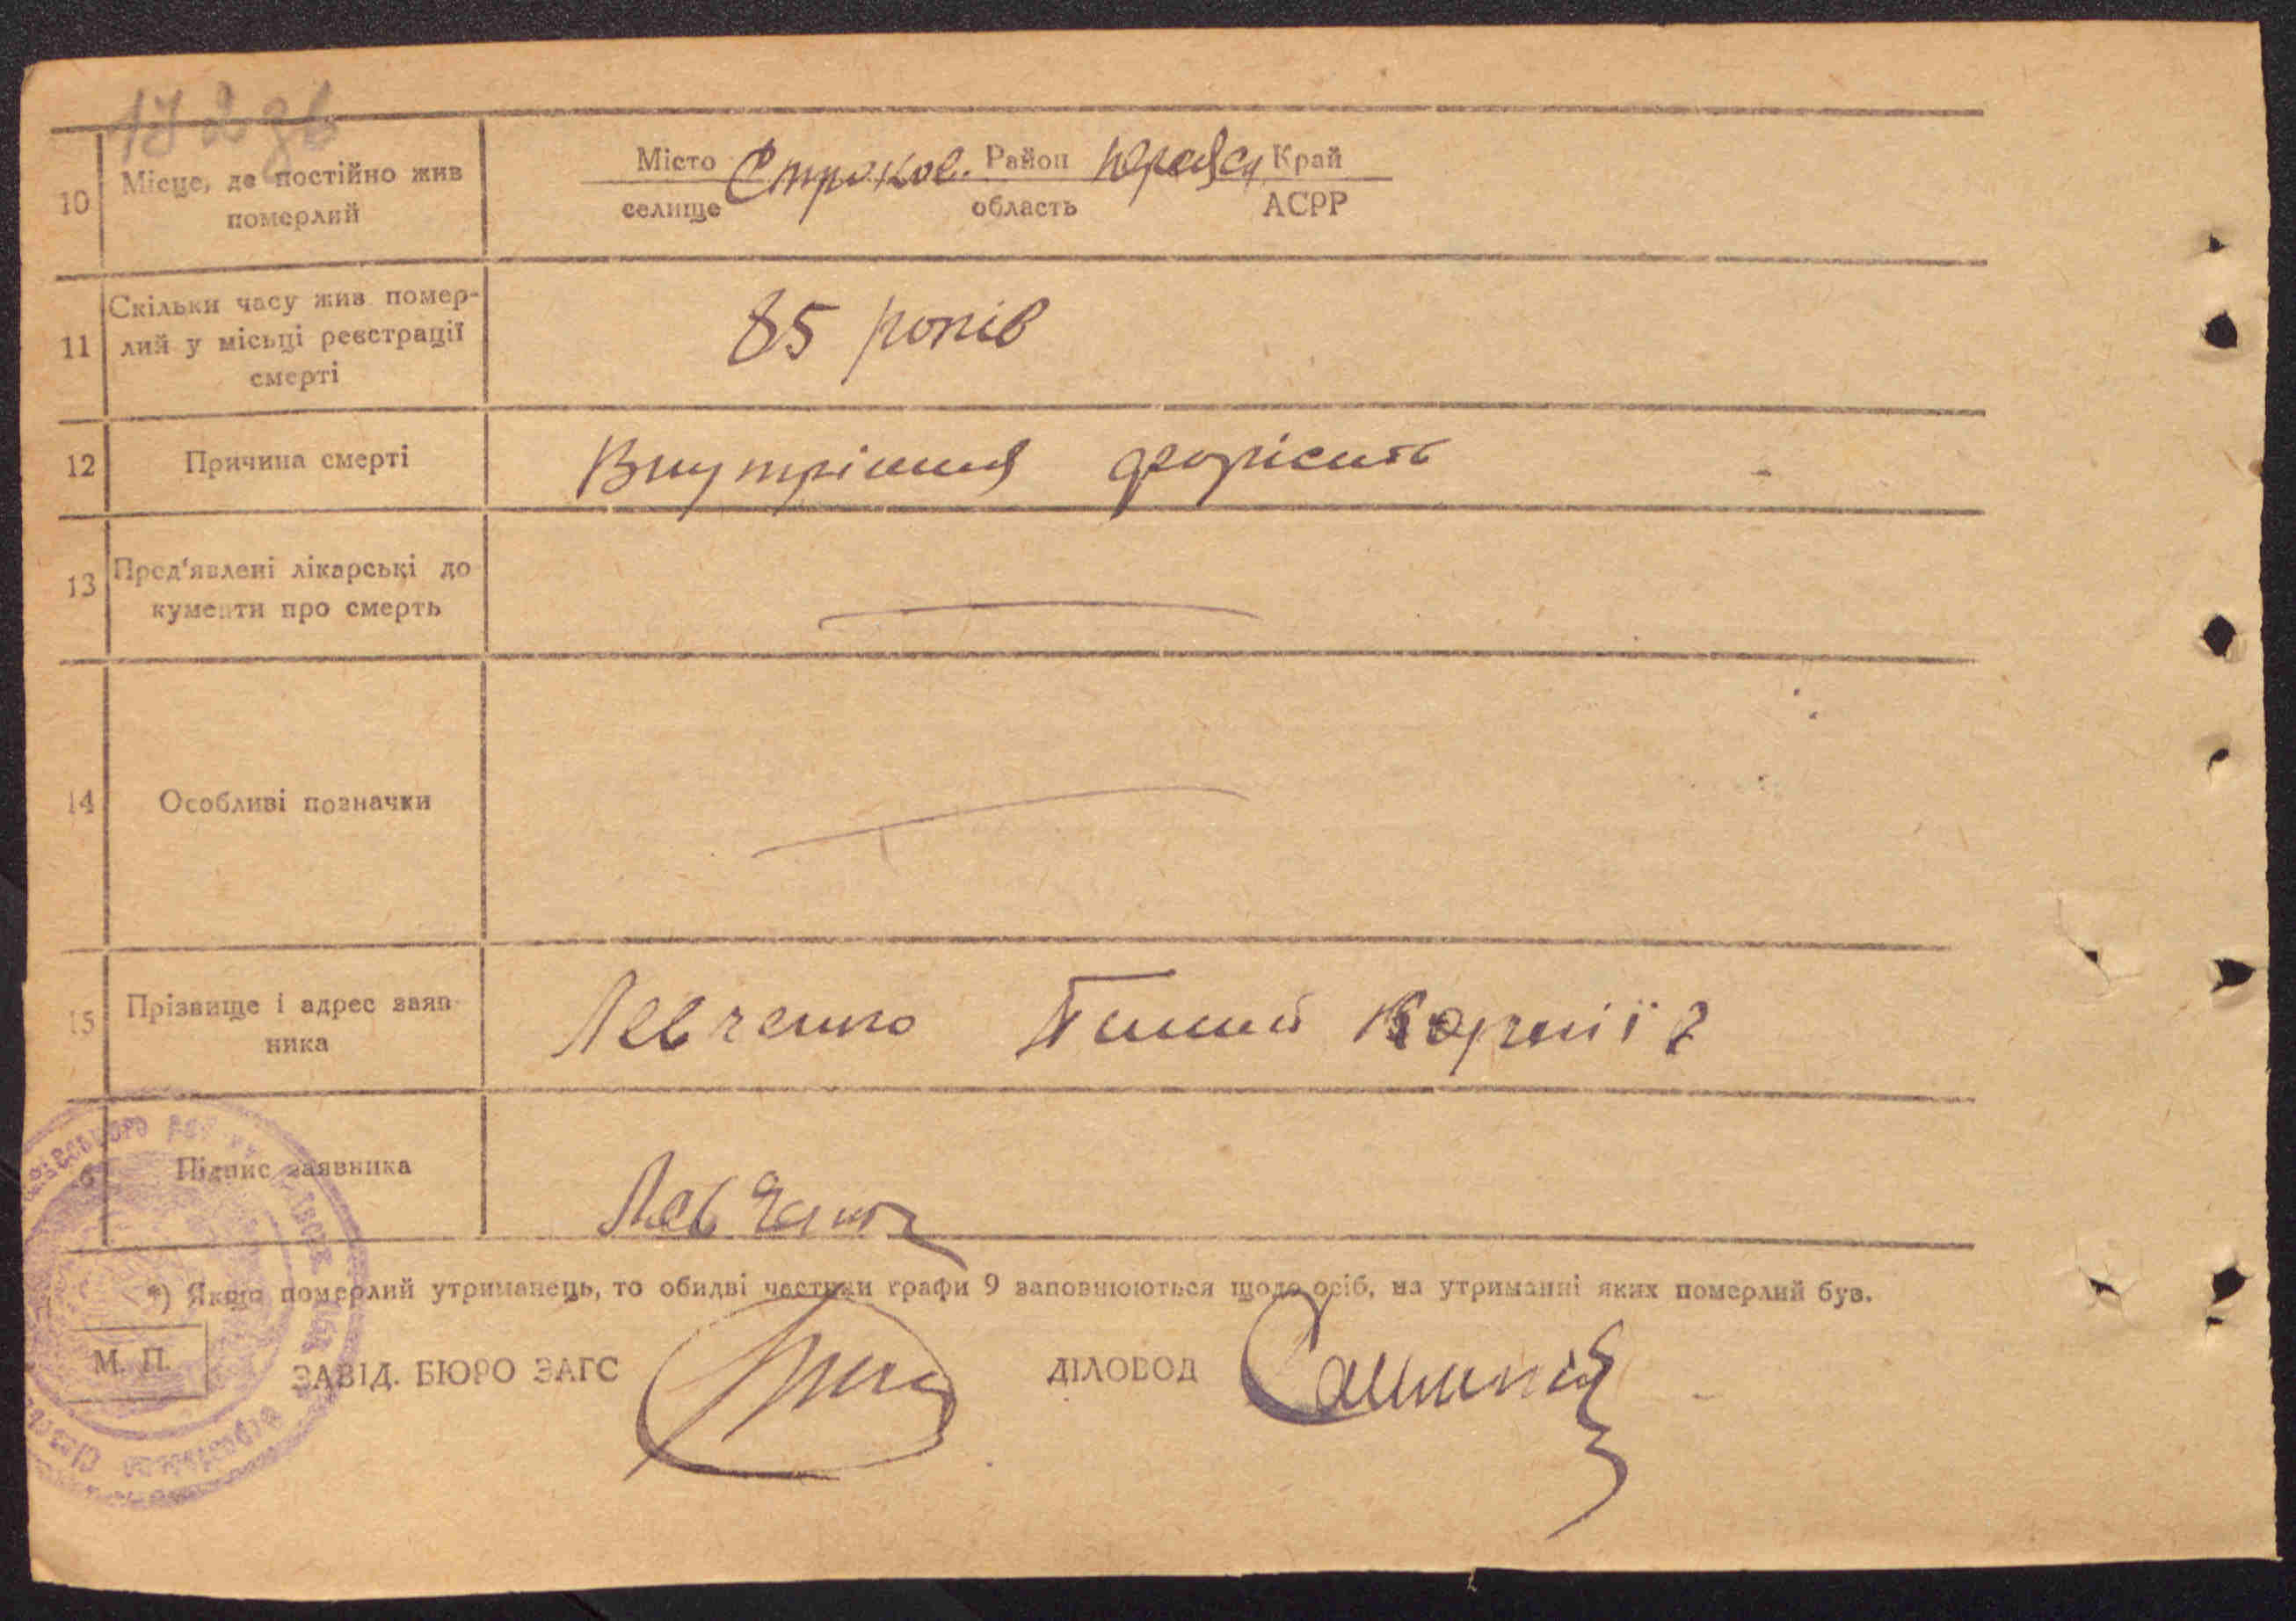 10 Місце, де постійно жив померлий
Місто Строков. Район Край
селище область АСРР
11 Скільки часу жив помер-
лий у місьці реєстрації
смерті
85 років
12 Причина смерті Внутрішня
13 Пред'явлені лікарські до
кументи про смерть
14 Особливі позначки
15 Прізвище і адрес заяв-
ника
Левченко Корній
Підпис заявника
Левченко
*) Якщо померлий утриманець, то обидві частини графи 9 заповнюються щодо осіб, на утриманні яких померлий був.
М. П.
ЗАВІД. БЮРО ЗАГС ДІЛОВОД